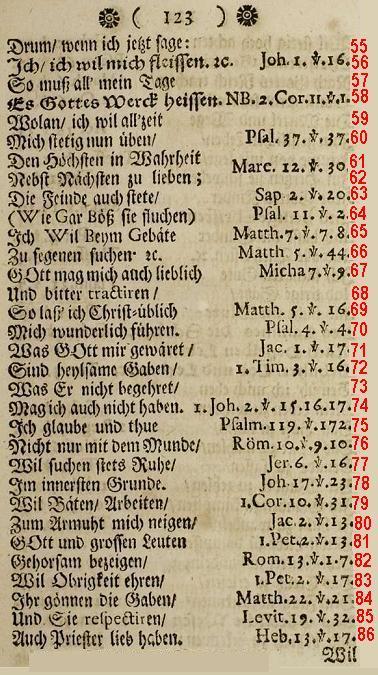 ( 123 )
Drum/ wenn ich jetzt sage: 55
Jch/ ich wil mich fleissen. ꝛc. Joh. 1. ꝟ. 16. 56
So muß all' mein Tage 57
Es Gottes Werck heissen. NB. 2. Cor. 11. ꝟ. 1. 58
Wolan/ ich wil all'zeit 59
Mich stetig nun üben/ Psal. 37. ꝟ. 37. 60
Den Höchsten in Wahrheit 61
Nebst Nächsten zu lieben; Marc. 12. ꝟ. 30. 62
Die Feinde auch stete/ Sap 2. ꝟ. 20. 63
(Wie Gar Böß sie fluchen) Psal. 11. ꝟ. 2. 64
Jch Wil Beym Gebäte Matth. 7. ꝟ. 7. 8. 65
Zu segenen suchen. ꝛc. Matth 5. ꝟ. 44. 66
GOtt mag mich auch lieblich Micha 7. ꝟ. 9. 67
Und bitter tractiren/ 68
So laß' ich Christ-üblich Matth. 5. ꝟ. 16. 69
Mich wunderlich führen. Psal. 4. ꝟ. 4. 70
Was GOtt mir gewäret/ Jac. 1. ꝟ. 17. 71
Sind heylsame Gaben/ 1. Tim. 3. ꝟ. 16. 72
Was Er nicht begehret/ 73
Mag ich auch nicht haben. 1. Joh. 2. ꝟ. 15. 16. 17. 74
Jch glaube und thue Psalm. 119. ꝟ. 172. 75
Nicht nur mit dem Munde/ Röm. 10. ꝟ. 9. 10. 76
Wil suchen stets Ruhe/ Jer. 6. ꝟ. 16. 77
Jm innersten Grunde. Joh. 17. ꝟ. 23. 78
Wil Bäten/ Arbeiten/ 1. Cor. 10. ꝟ. 31. 79
Zum Armuht mich neigen/ Jac. 2. ꝟ. 13. 80
GOtt und grossen Leuten 1. Pet. 2. ꝟ. 13. 81
Gehorsam bezeigen/ Rom. 13. ꝟ. 1. 7. 82
Wil Obrigkeit ehren/ 1. Pet. 2. ꝟ. 17. 83
Jhr gönnen die Gaben/ Matth. 22. ꝟ. 21. 84
Und Sie respectiren/ Levit. 19. ꝟ. 32. 85
Auch Priester lieb haben. Heb. 13. ꝟ. 17. 86
Wil